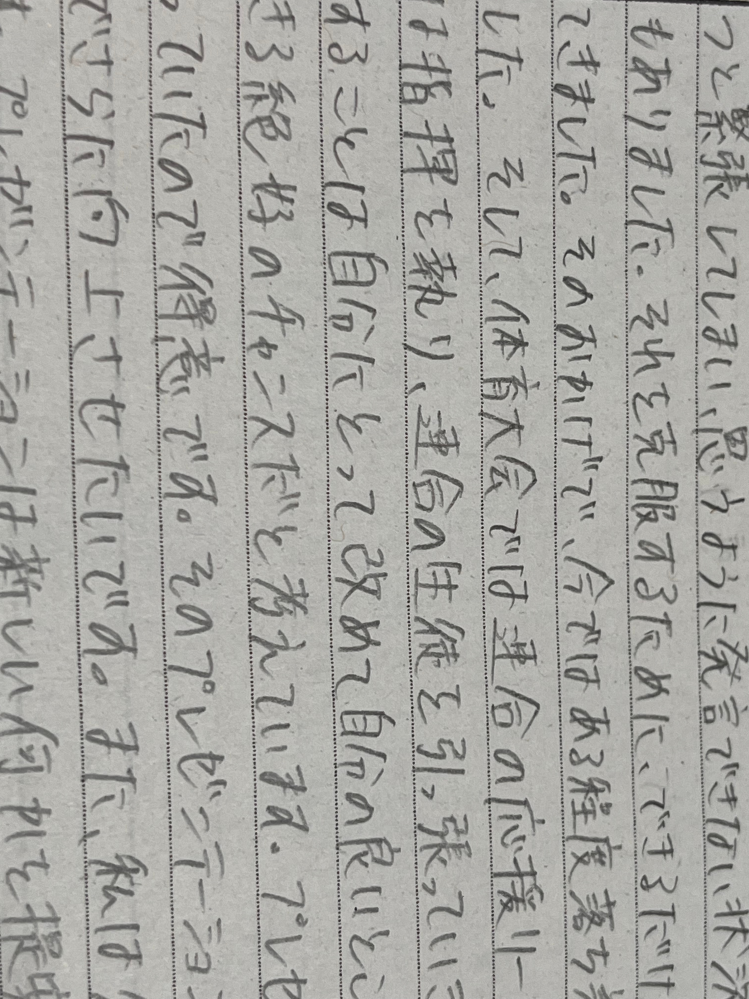 つと緊張してしまい、思うように発言できない状況
もありました。それを克服するために、できるだけ
できました。そのおかげで、今ではある程度落ち
した。そして、体育大会では連合の応援リー
は指揮を執り、連合の生徒を引っ張ってい
することは自分にとって改めて自分の良いとこ
きる絶好のチャンスだと考えています。プレゼ
っていたので得意です。そのプレゼンテーショ
でさらに向上させたいです。また、私は
プレゼンテーションは新しい何かを提案